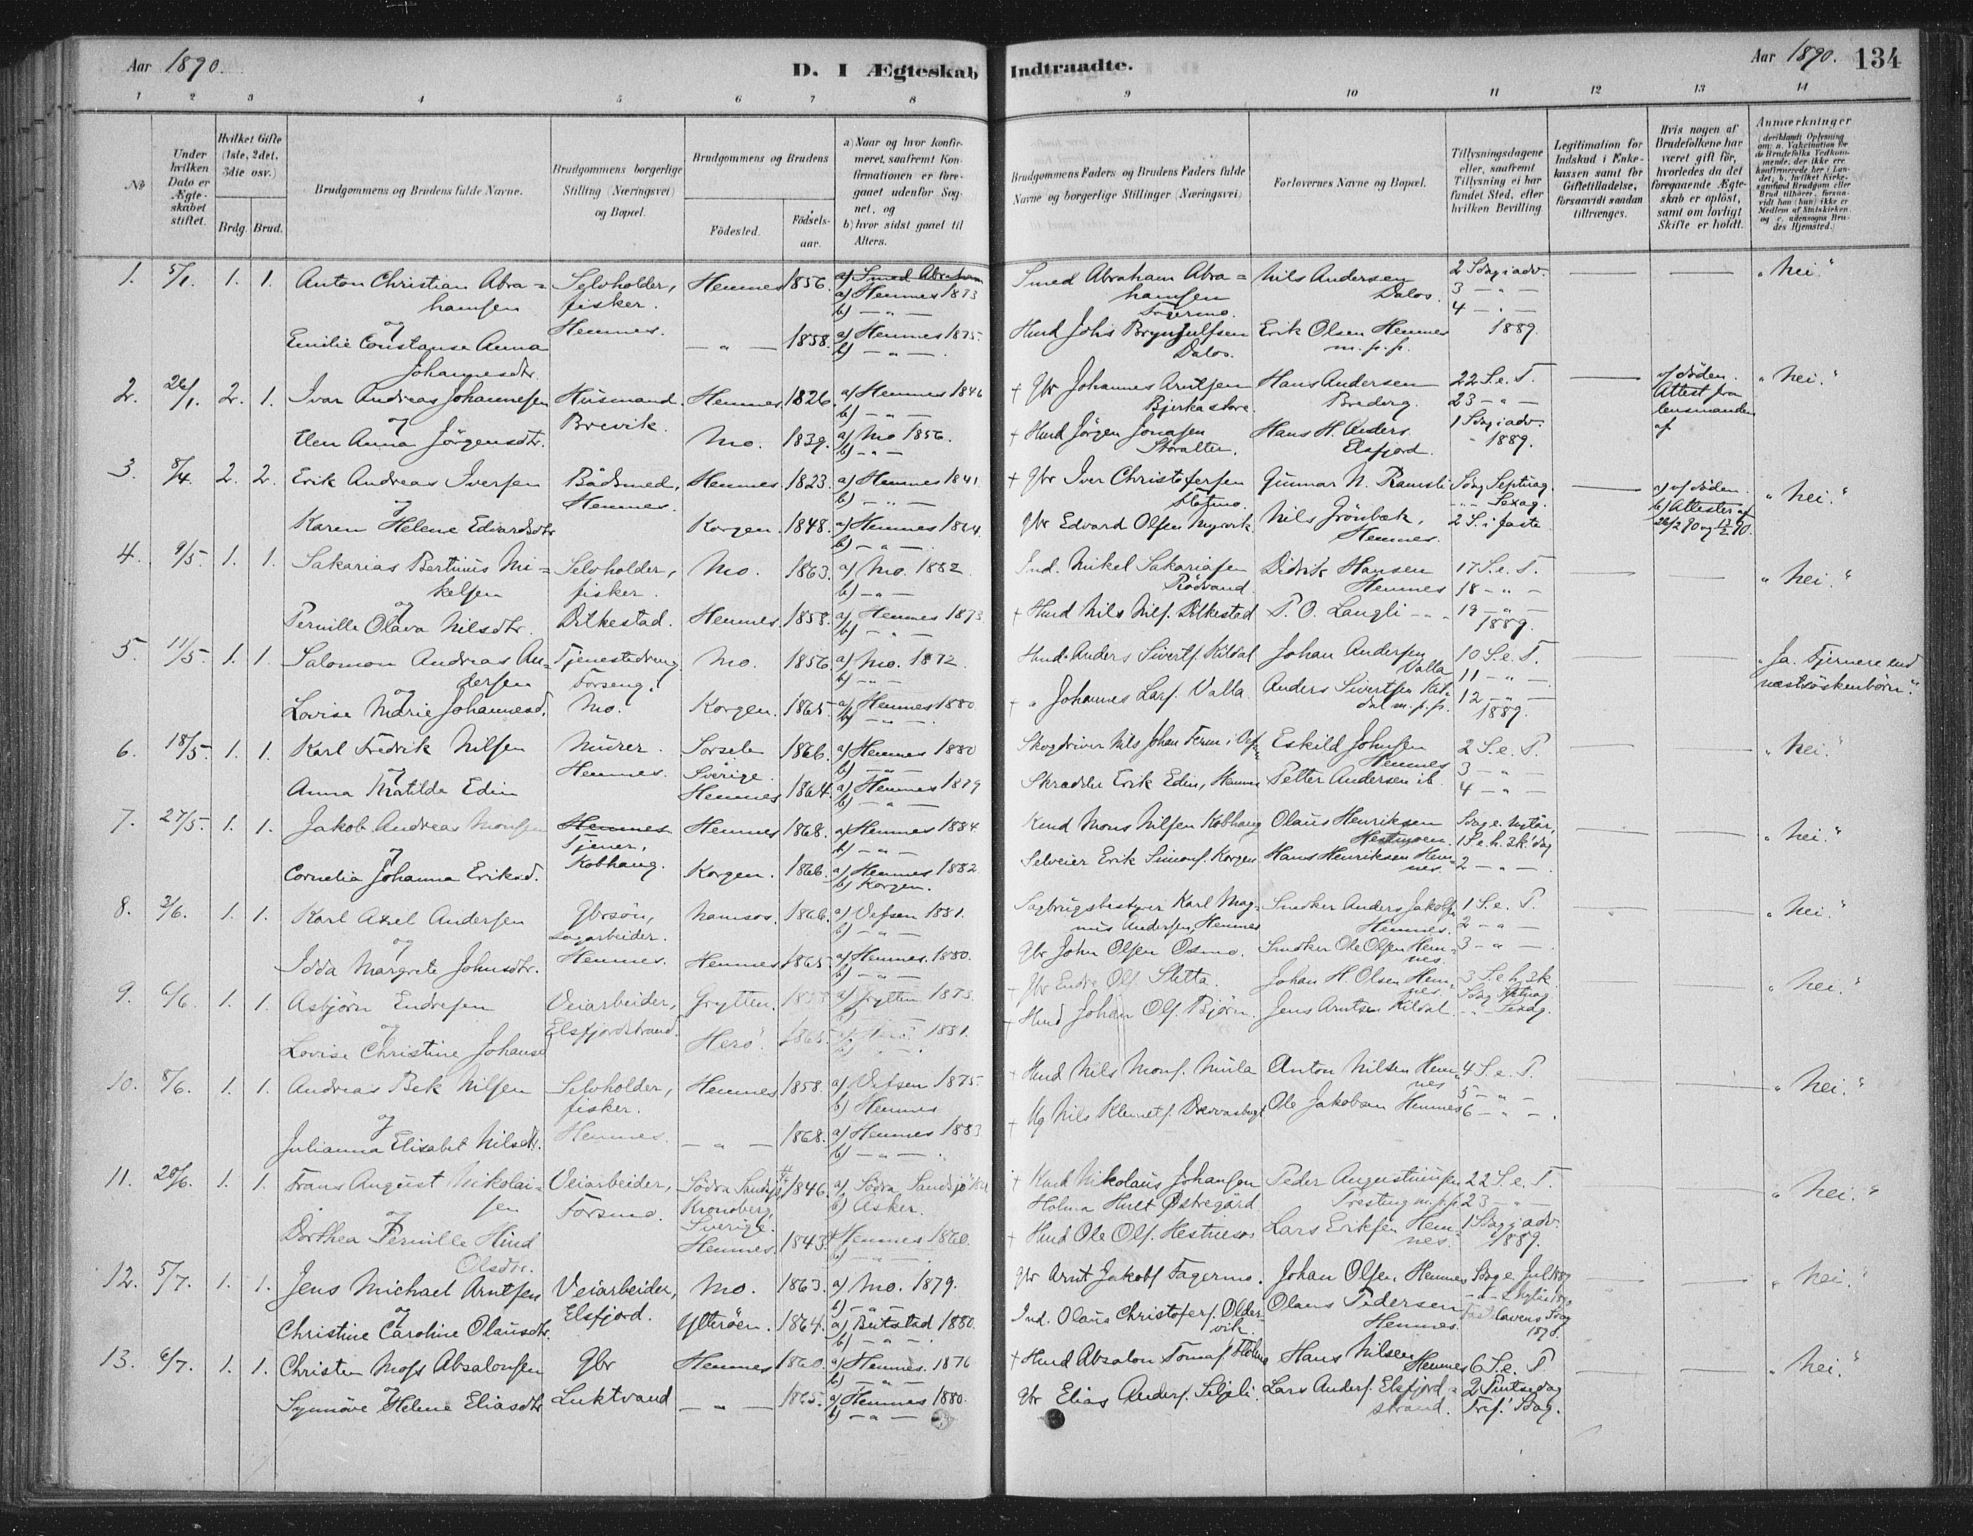 Aar 1890.
D. I Ægteskab Indtraadte.
Aar 1890. 134
1 2 3 4 5 6 7 8 9 10 11 12 13 14
No
Under hvilken Dato er Ægteskabet stiftet.
Hvilket Gifte (1ste, 2det, 3die osv.)
Brdg. Brud.
Brudgommens og Brudens fulde Navne.
Brudgommens borgerlige Stilling (Næringsvei) og Bopæl.
Brudgommens og Brudens
Födested.
Födselsaar.
a) Naar og hvor konfirmeret, saafremt Konfirmationen er foregaaet udenfor Sognet, og
b) hvor sidst gaaet til Alters.
Brudgommens Faders og Brudens Faders fulde Navne og borgerlige Stillinger (Næringsvei)
Forlovernes Navne og Bopæl.
Tillysningsdagene eller, saafremt Tillysning ei har fundet Sted, efter hvilken Bevilling
Legitimation for Indskud i Enkekassen samt for Giftetilladelse, forsaavidt saadan tiltrænges.
Hvis nogen af Brudefolkene har været gift för, hvorledes da det foregaaende Ægteskab er oplöst, samt om lovligt Skifte er holdt.
Anmærkninger
1. 5/1. 1. 1. Anton Christian Abrahamsen Selvholder, fisker. Hemnes. Hemnes 1856. a) Hemnes 1873 b) — " — Smed Abraham Abrahamsen Fagermo. Nils Andersen Dalos. 2 Sdag i adv. 3 — " — 4 — " — 1889. "Nei."
og
Emilie Constanse Anna Johannesdtr. — " — 1858. a) Hemnes 1875. b) — " — Husd Johs Brynjulfsen Dalos. Erik Olsen Hemnes m.p.p.
2. 26/1. 2. 1. Ivar Andreas Johannesen Husmand. Brevik. Hemnes. 1826. a) Hemnes 1846 b) — " — + Gbr Johannes Arntsen Bjerka store. Hans Andersen Bredeng. 22 S.e.T. 23 — " — 1 Sdag i adv. 1889. v/ döden. Attest fra lensmanden "Nei."
og
Elen Anna Jörgensdtr. Mo. 1839. a) Mo 1856. b) — " — + Husd Jörgen Jonasen Storalten. Hans H. Anders. Elsfjord.
3. 8/4. 2. 2. Erik Andreas Iversen Bådsmed, Hemnes. Hemnes 1823. a) Hemnes 1841 b) — " — + Gbr Iver Christofersen Gunnar N. Ramsli Sdag Septuag. — " — Sexag. 2 S. i faste a) v/ döden. b) Attester af "Nei."
og
Karen Helene Edvardsdtr Korgen. 1848. a) Hemnes 1864. b) — " — Gbr Edvard Olsen Myrvik Nils Grönbæk, Hemnes.
4. 9/5. 1. 1. Sakarias Bertinus Mikelsen Selvholder, fisker. Dilkestad. Mo. 1863. a) Mo. 1882 b) — " — Ind. Mikel Sakariasen Rödvand. Didrik Hansen Hemnes 17 S.e.T. 18 — " — 19 — " — 1889. "Nei."
og
Pernille Olava Nilsdtr. Hemnes 1858. a) Hemnes 1873 b) — " — + Husd Nils Nils. Dilkestad P. O. Langli — " —
5. 11/5. 1. 1. Salomon Andreas Andersen Tjenestedreng Forseng, Mo. Mo. 1856 a) Mo. 1872. b) — " — Husd. Anders Sivertf. Kildal Johan Andersen Valla 10 S.e.T. 11 — " — 12 — " — 1889. "Ja. Fjernere end næstsöskenbörn."
og
Lovise Marie Johannesd. Korgen. 1865 a) Hemnes 1880 b) — " — + " Johannes Larf. Valla Anders Sivertsen Kildal m.p.p.
6. 18/5. 1. 1. Karl Fredrik Nilsen Murer. Hemnes. Sorsele Sverige. 1866. a) Hemnes 1880 b) — " — Skogdriver Nils Johan Eskild Johnsen Hemnes 2 S.e.P. 3 — " — 4 — " — "Nei."
og
Anna Matilde Edin Hemnes 1864. a) Hemnes 1879 b) — " — Skrædder Erik Edin, Hemnes Petter Andersen ib.
7. 27/5. 1. 1. Jakob Andreas Monsen Hemnes Tjener, Kobhaug. Hemnes 1868. a) Hemnes 1884. b) — " — Husd Mons Nilsen Kobhaug Olaus Henriksen Sdag e. Nytår, 1 S.e.h. 3k. dag 2 — " — "Nei."
og
Cornelia Johanna Eriksd. Korgen. 1866. a) Hemnes 1882 b) Korgen. Selveier Erik Simonf. Korgen Hans Henriksen Hemnes.
8. 3/6. 1. 1. Karl Axel Andersen Gbrsön, sagarbeider. Hemnes. Namsos. 1866. a) Vefsen 1881. b) — " — Sagbrugsbestyrer Karl Magnus Andersen, Hemnes Snedker Anders Jakobsen Hemnes. 1 S.e.P. 2 — " — 3 — " — "Nei."
og
Idda Margrete Johnsdtr. Hemnes 1865 a) Hemnes. 1880. b) — " — Gbr John Olsen Osmo. Snedker Ole Olsen Hemnes.
9. 6/6. 1. 1. Asbjörn Endresen Veiarbeider, Elsfjordstrand. Grytten. a) Grytten 1873. Gbr Endre Olf. Sletta. Johan H. Olsen Hemnes. 3 S.e.h.3k. Sdag Septuag — " — Sexag. "Nei."
og
Lovise Christine Johansd Herö. 1865. 1881. + Husd Johan Olf. Bjørn. Jens Arntsen Kildal.
10. 8/6. 1. 1. Andreas Bek Nilsen Selvholder, fisker. Hemnes. Hemnes 1858. a) Vefsen 1875. b) Hemnes + Husd Nils Monf. Mula Anton Nilsen Hemnes 4 S.e.P. 5 — " — 6 — " — "Nei."
og
Julianna Elisabet Nilsdtr. — " — 1868. a) Hemnes 1883 b) — " — Nils Klemetf. Ole Jakobsen Hemnes
11. 20/6. 1. 1. Frans August Nikolaisen Veiarbeider, Forsmo. Södra Kronoberg, Sverige. 1846. a) Södra Sandsjö b) Asker. + Nikolaus Johanson Holma Östregård. Peder Augustinusen m.p.p. 22 S.e.T. 23 — " — 1 Sdag i adv. 1889. "Nei."
og
Dorthea Pernille Hind Olsdtr. Hemnes. 1843. Hemnes 1860. b) — " — + Husd Ole Olf. Hestnesos Lars Eriksen Hemnes.
12. 5/7. 1. 1. Jens Michael Arntsen Veiarbeider, Elsfjord. Mo. 1863. a) Mo. 1879. b) — " — Gbr Arnt Jakobf. Fagermo. Johan Olsen Hemnes Sdag e. Jul 1889 "Nei."
og
Christine Caroline Olausdtr. Ytteröen. 1864. a) Beitstad 1880. b) — " — Ind. Olaus Christoferf. Oldervik. Olaus Pedersen Hemnes. Fastelavens Sdag 1890.
13. 6/7. 1. 1. Christen Mofs Absalonsen Gbr Luktvand Hemnes 1860. a) Hemnes. 1876 b) — " — + Husd Absalon Tomaf. Holme Hans Nilsen Hemnes 6 S.e.P 2 Pintsedag Tref. Sdag. "Nei."
og
Synnöve Helene Eliasdtr — " — 1865. a) Hemnes 1880. b) — " — Gbr Elias Anderf. Seljeli Lars Anderf. Elsfjordstrand.